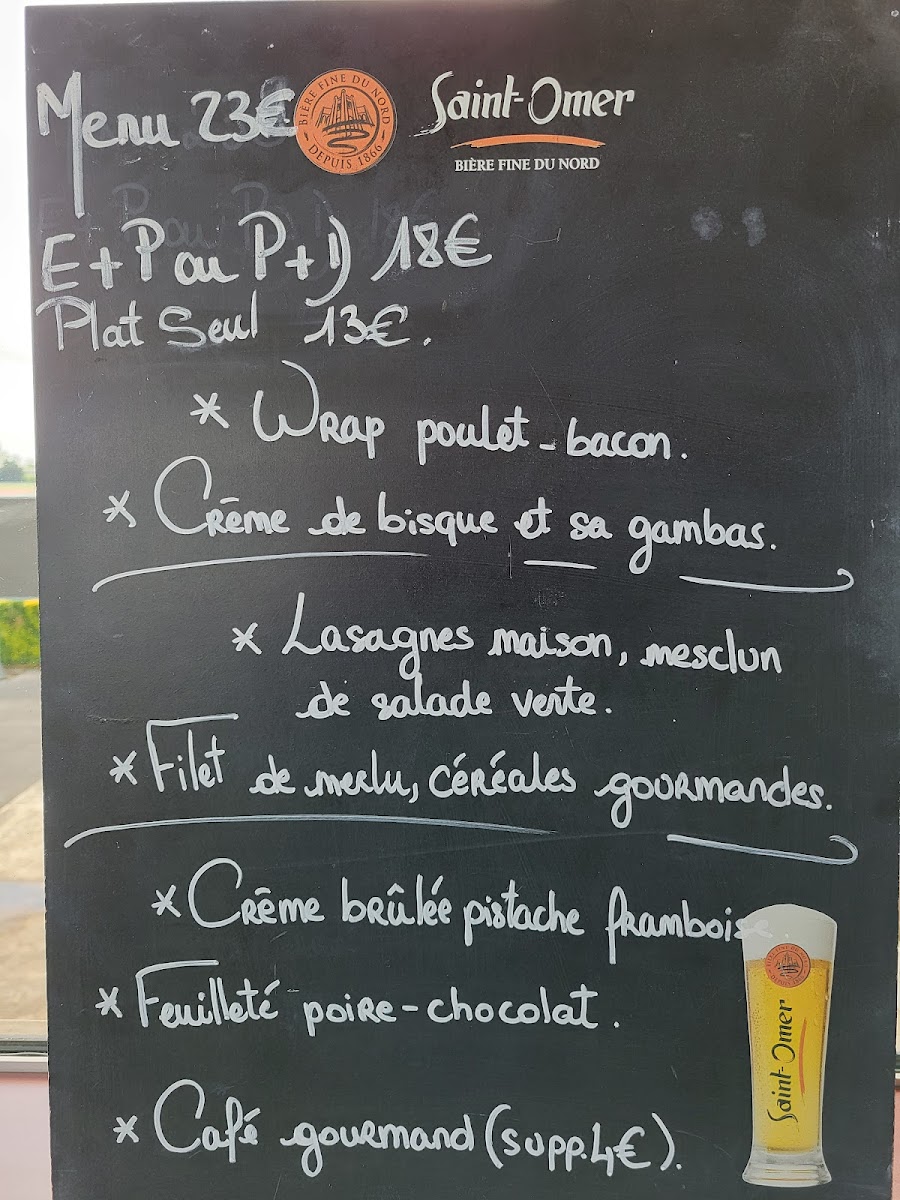 Menu 23€
BIÈRE FINE DU NORD
DEPUIS 1866
Saint-Omer
BIÈRE FINE DU NORD
E+P ou P+D 18€
Plat Seul 13€.
* Wrap poulet-bacon.
* Crème de bisque et sa gambas.
* Lasagnes maison, mesclun
de salade verte.
* Filet de merlu, céréales gourmandes.
* Crème brûlée pistache framboise.
* Feuilleté poire-chocolat.
* Café gourmand (supp.4€).
Saint-Omer